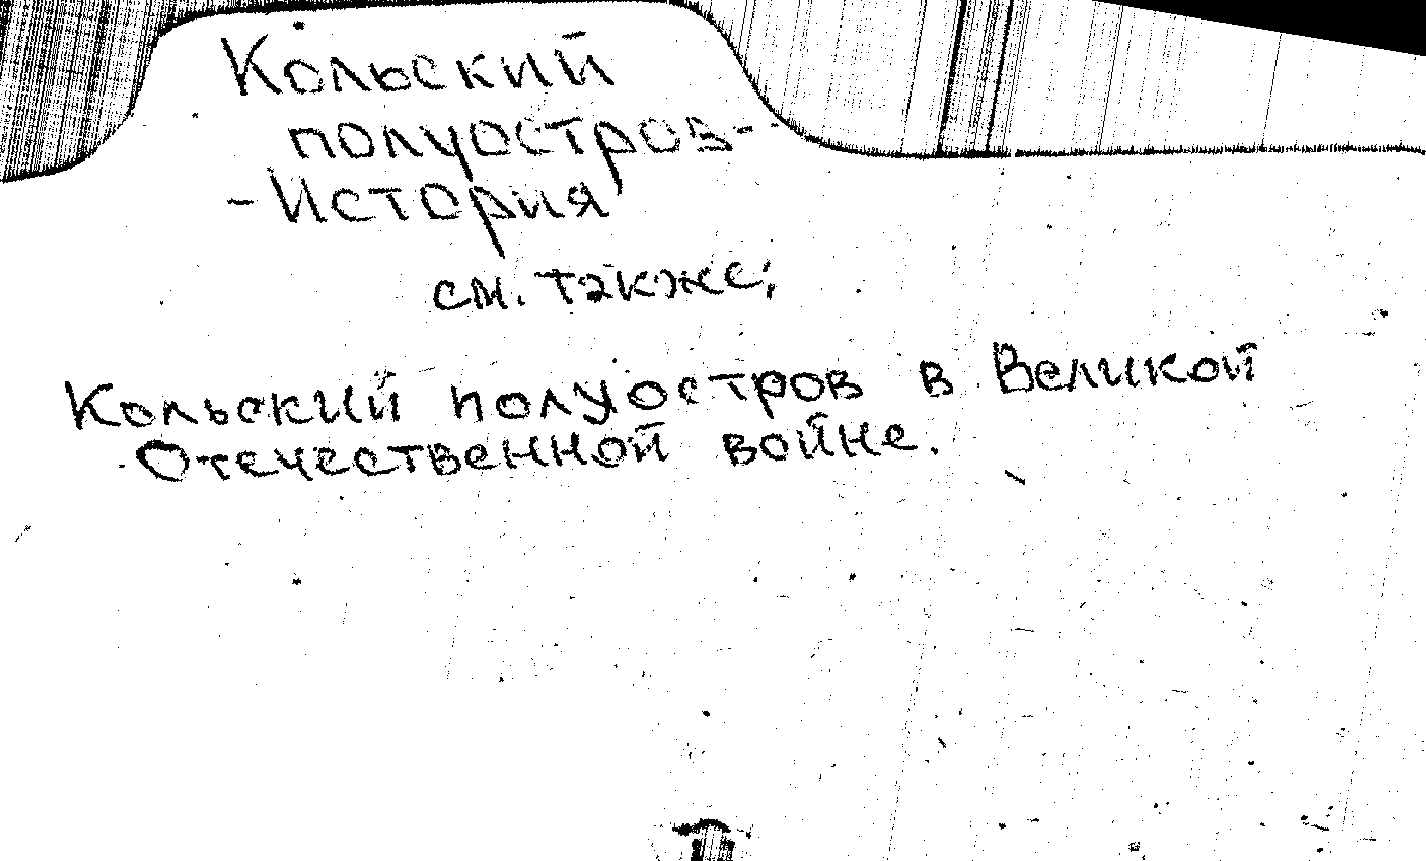 Кольский
полуостров-
-История
см. также:
Кольский полуостров в Великой
Отечественной войне.